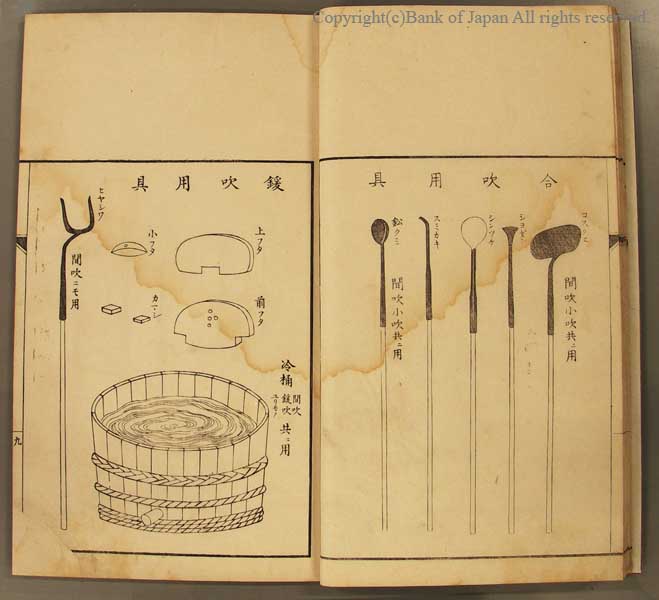 Copyright(c)Bank of Japan All rights reserved.
合吹用具
コスクミ
間吹小吹共ニ用
シンヅケ
スミカキ
鉛クミ
間吹小吹共ニ用
鍰吹用具
上フタ
前フタ
小フタ
冷桶
間吹
鍰吹
共ニ用
ヒヤシワ
間吹ニモ用
九